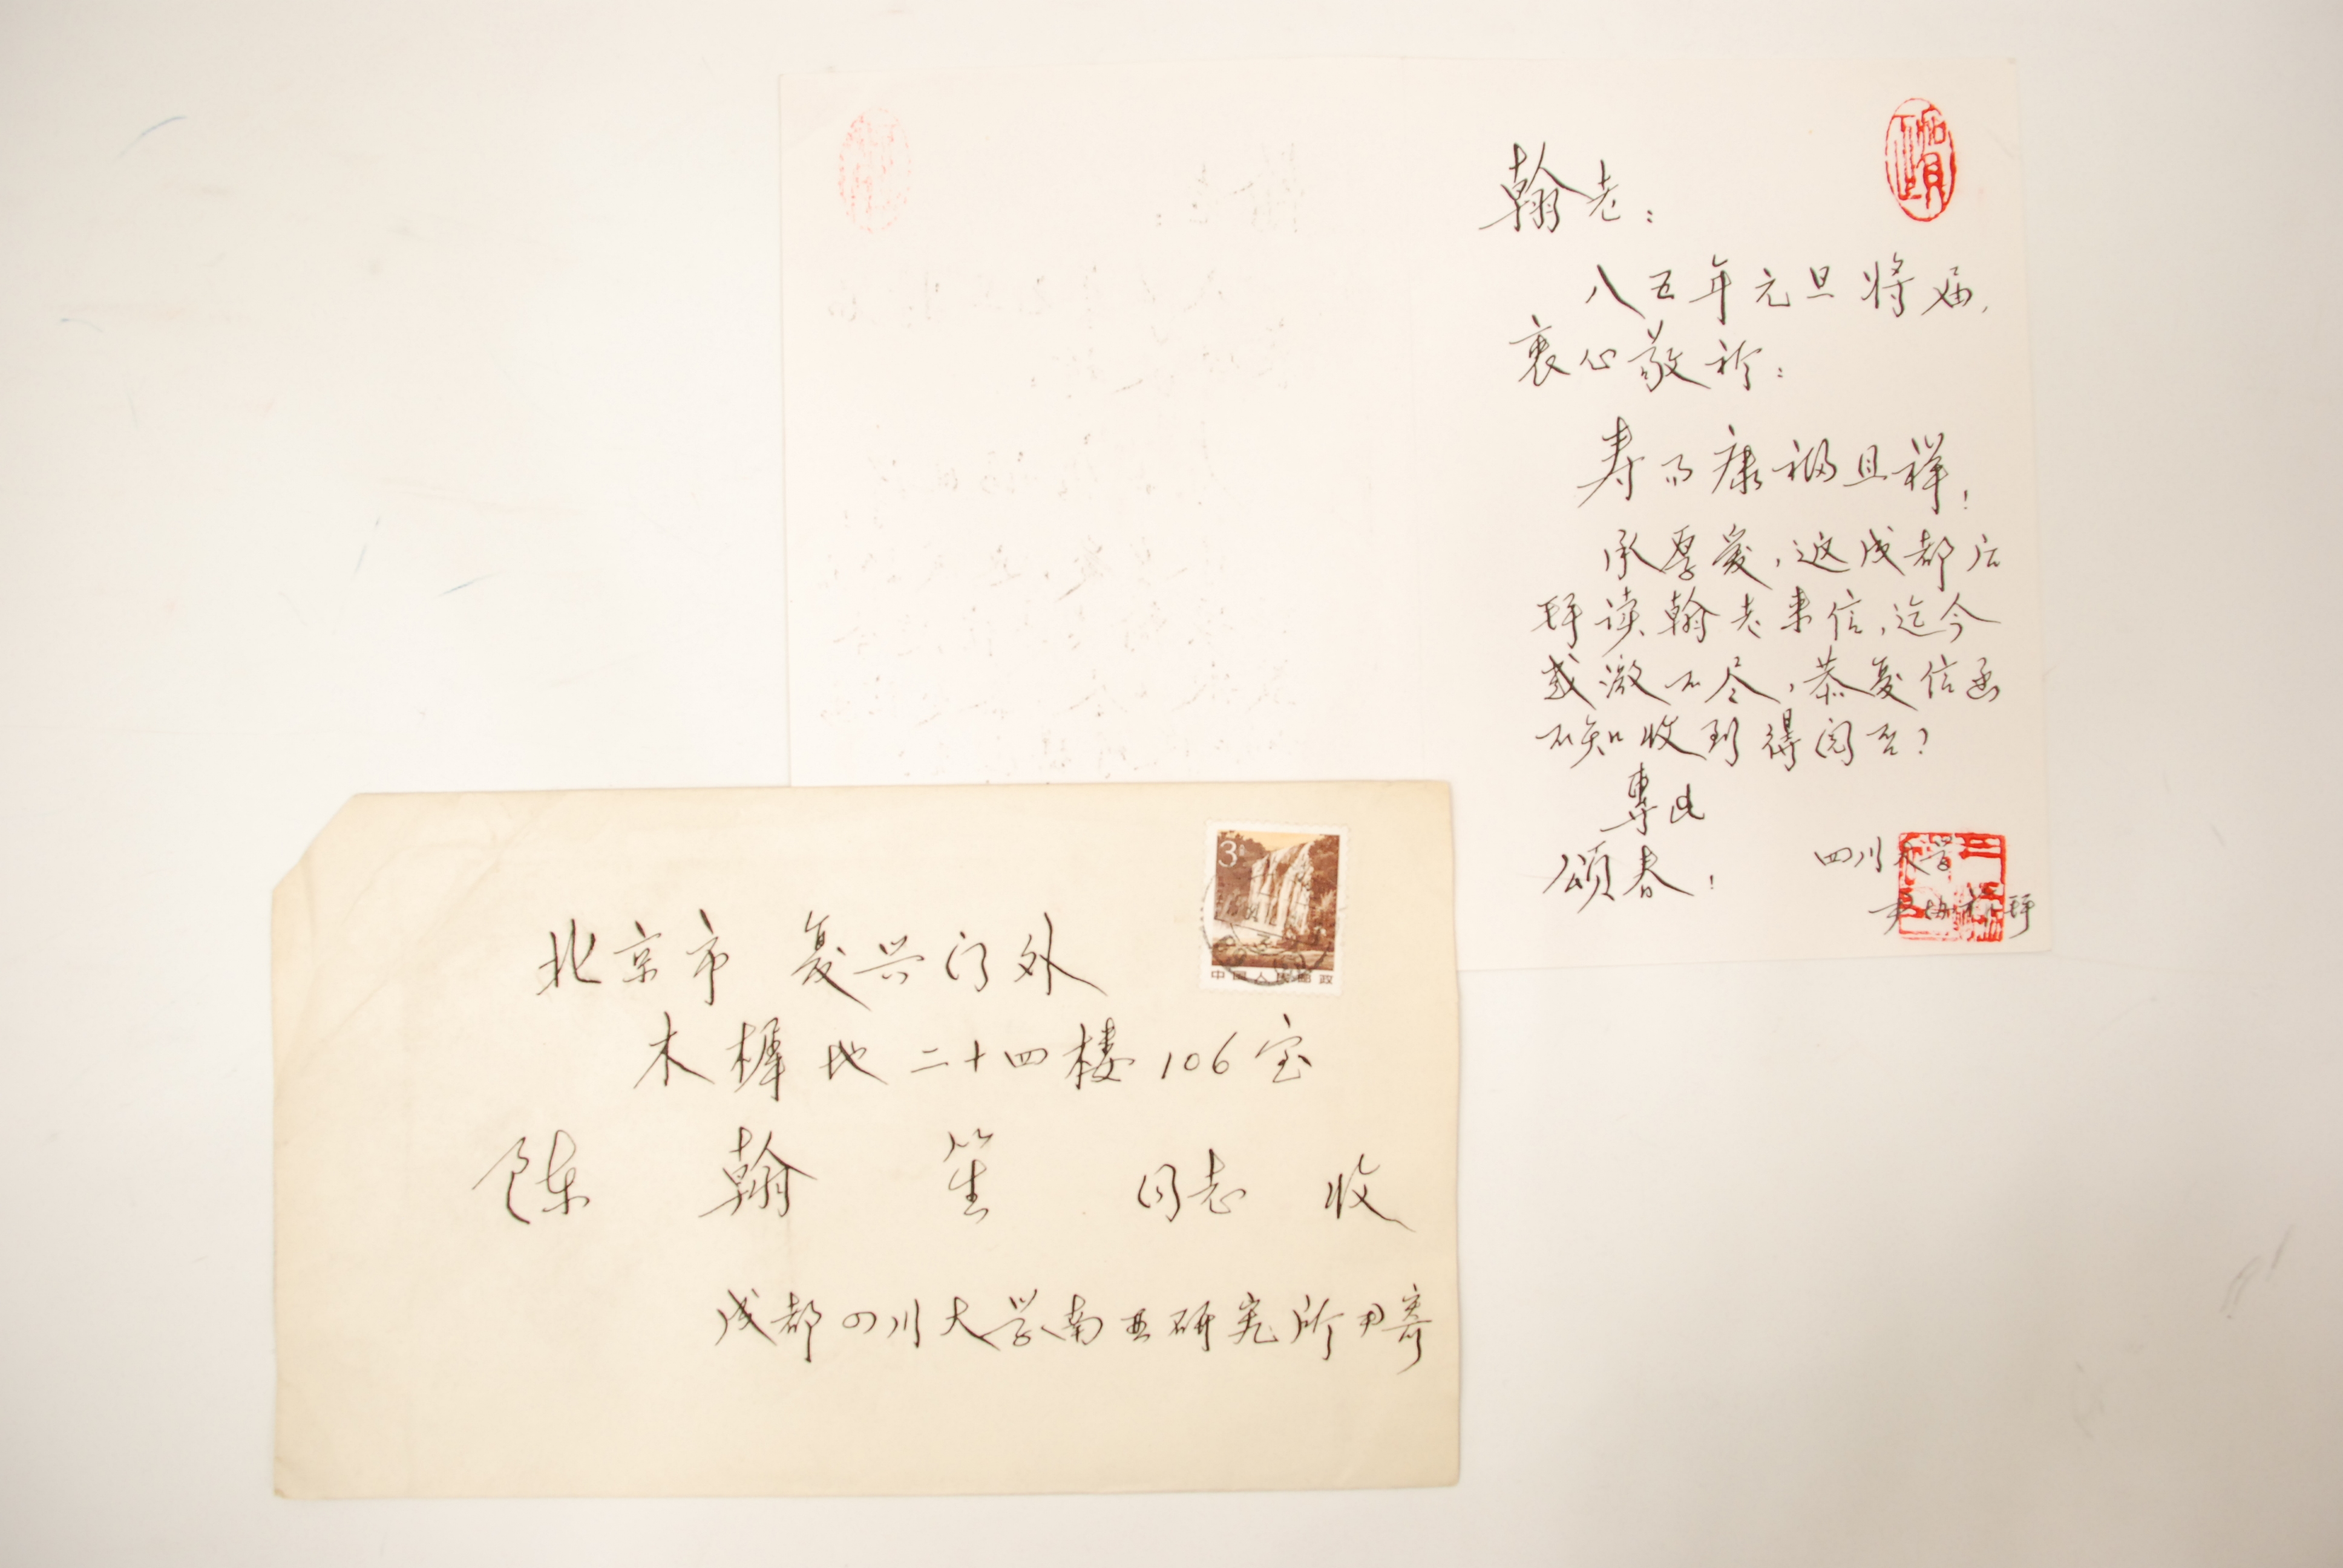 翰老：
八五年元旦将届，
衷心敬祈：
寿而康福且祥！
承厚爱，返成都后
拜读翰老来信，迄今
感激不尽，恭复信函
不知收到得阅否？
专此
颂春！
四川大学
贺
3
中国人民邮政
北京市 复兴门外
木樨地二十四楼106室
陈 翰 笙 同志 收
成都四川大学南亚研究所尹寄